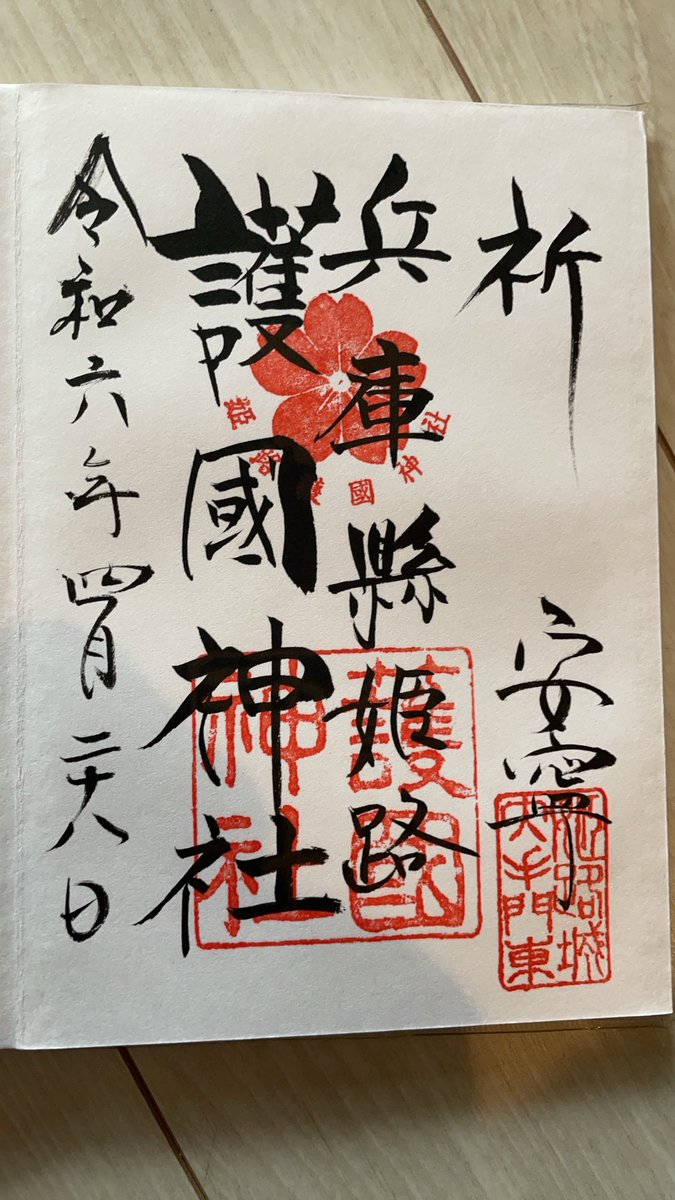 祈 安寧
姫路城
大手門東
兵庫縣姫路
護國神社
姫路護國神社
護國
神社
令和六年四月二十八日